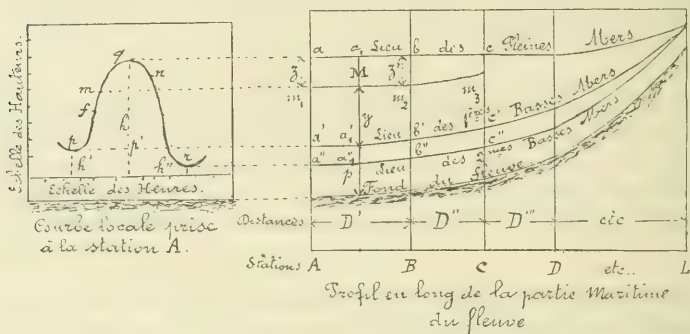 Echelle des Hauteurs.
q
m
n
f
h
p
p'
r
h'
h''
Echelle des Heures.
Courbe locale prise
à la station A.
a a, Lieu b des c Pleines Mers
z M z''
m₁ m₂ m₃
y
a' a'₁ Lieu b' des p^ères c' Basses Mers
a'' a''₁ Lieu b'' des 2^mes c'' Basses Mers
p
Fond du fleuve
Distances D' D'' D''' etc
Stations A B C D etc.. L
Profil en long de la partie Maritime
du fleuve